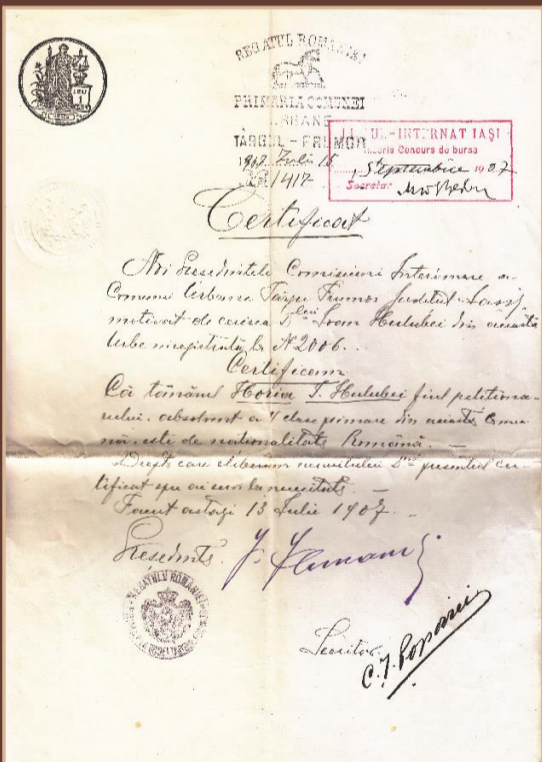 REGATUL ROMANIEI
PRIMARIA COMUNEI
URBANE
TÂRGUL-FRUMOS
1907 Iulie 15
No 1417
LICEUL-INTERNAT IAŞI
Inscris Concurs de bursa
1 Septembrie 1907
Secretar
Certificat
Noi Preşedintele Comisiunei Interimare a
Comunei Urbane Târgu Frumos Judetul Iassy
motivat de cererea D-lui Ioan Hulubei din această
Urbe înregistrată la No 2006.
Certificam
Că tânărul Horia I. Hulubei fiul petitiona-
rului, absolvent a 4 clase primare din această Comu-
nă, este de nationalitate Română.
Drept care eliberăm numitului prezentul cer-
tificat spre a-i servi la necesitate.
Facut astazi 13 Iulie 1907.
Preşedinte
REGATUL ROMANIEI
Secretar
C. I. Popovici